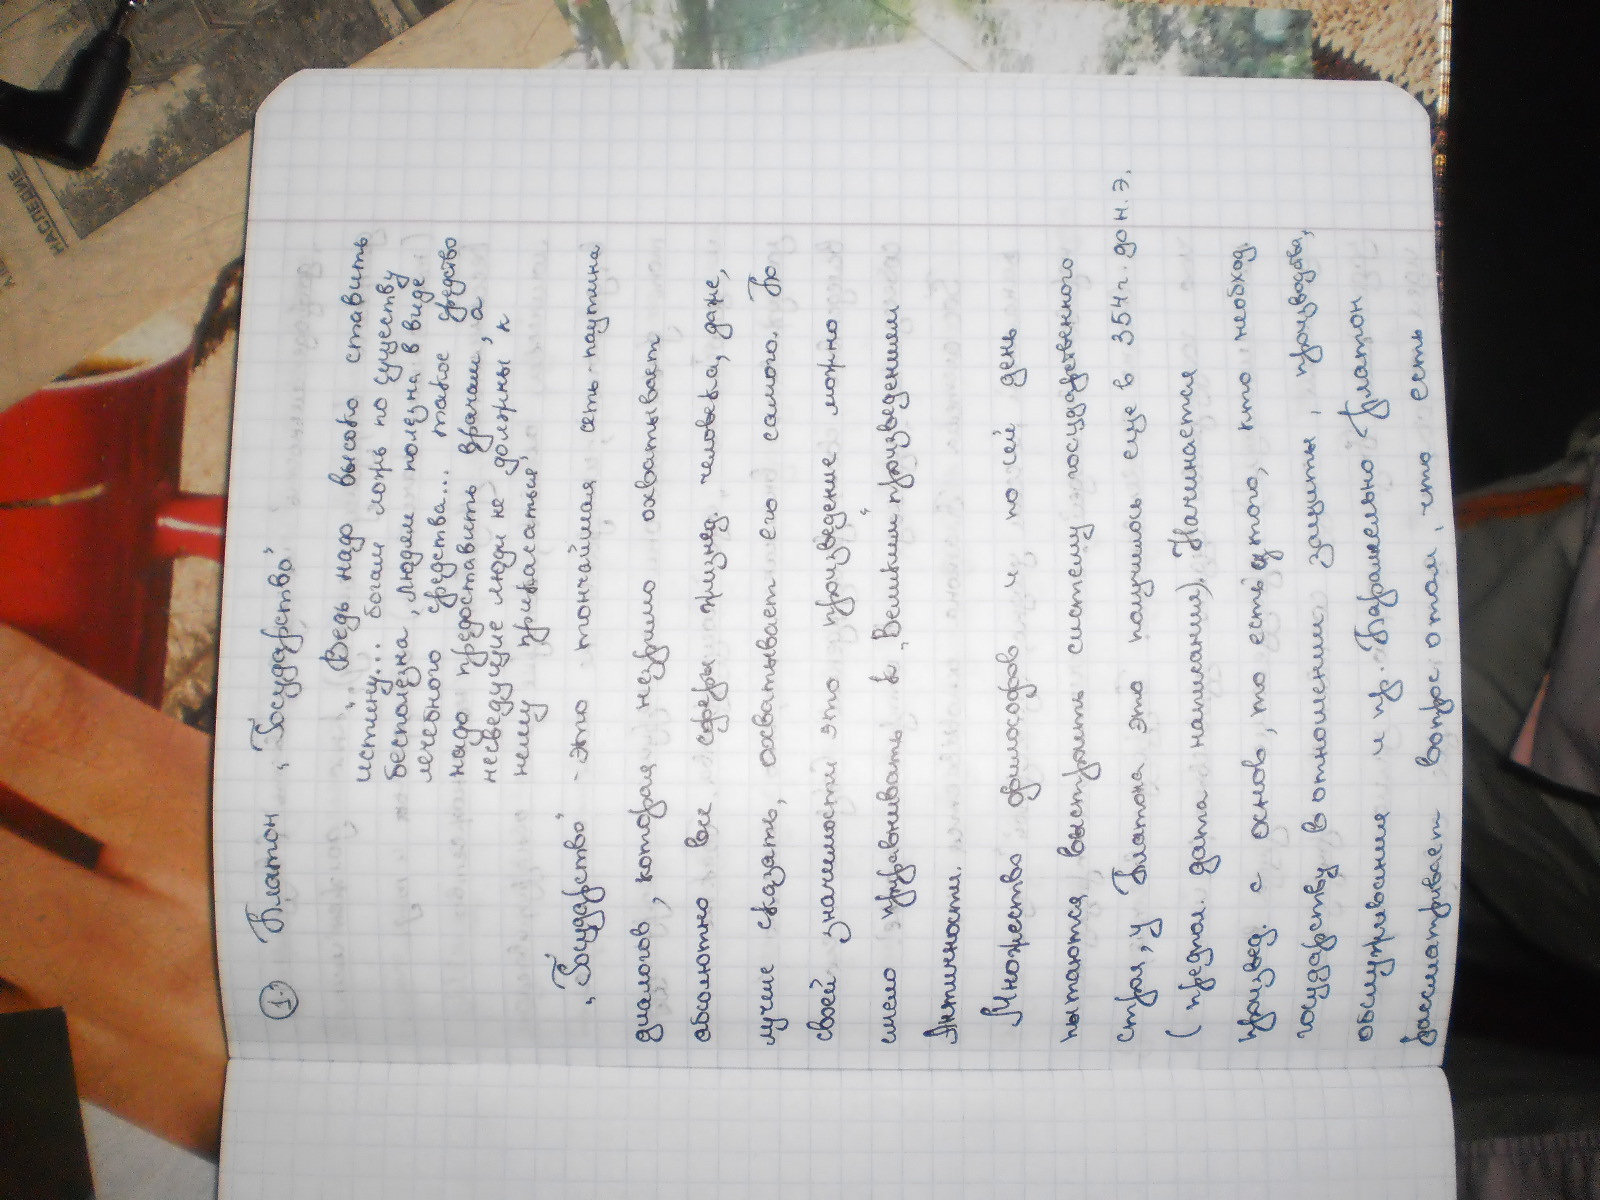 1. Платон „Государство“
„(Ведь надо высоко ставить
истину... богам ложь по существу
бесполезна, людям полезна в виде
лечебного средства... такое средство
надо предоставить врачам, а
несведущие люди не должны к
нему прикасаться“
„Государство“ - это тончайшая сеть-паутина
диалогов, которая незримо охватывает
абсолютно все сферы жизнед. человека, даже,
лучше сказать, охватывает его самого. По
своей значимости это произведение можно
смело приравнивать к „Великим“ произведениям
Античности.
Множество философов и по сей день
пытаются выстроить систему государственного
строя, у Платона это получилось еще в 354 г. до н. э.
(предпол. дата написания). Начинается
произвед. с основ, то есть с того, кто необход.
государству в отношении защиты, производства,
обслуживания и пр. Параллельно Платон
рассматривает вопрос о том, что есть
НАСЛЕДИЕ